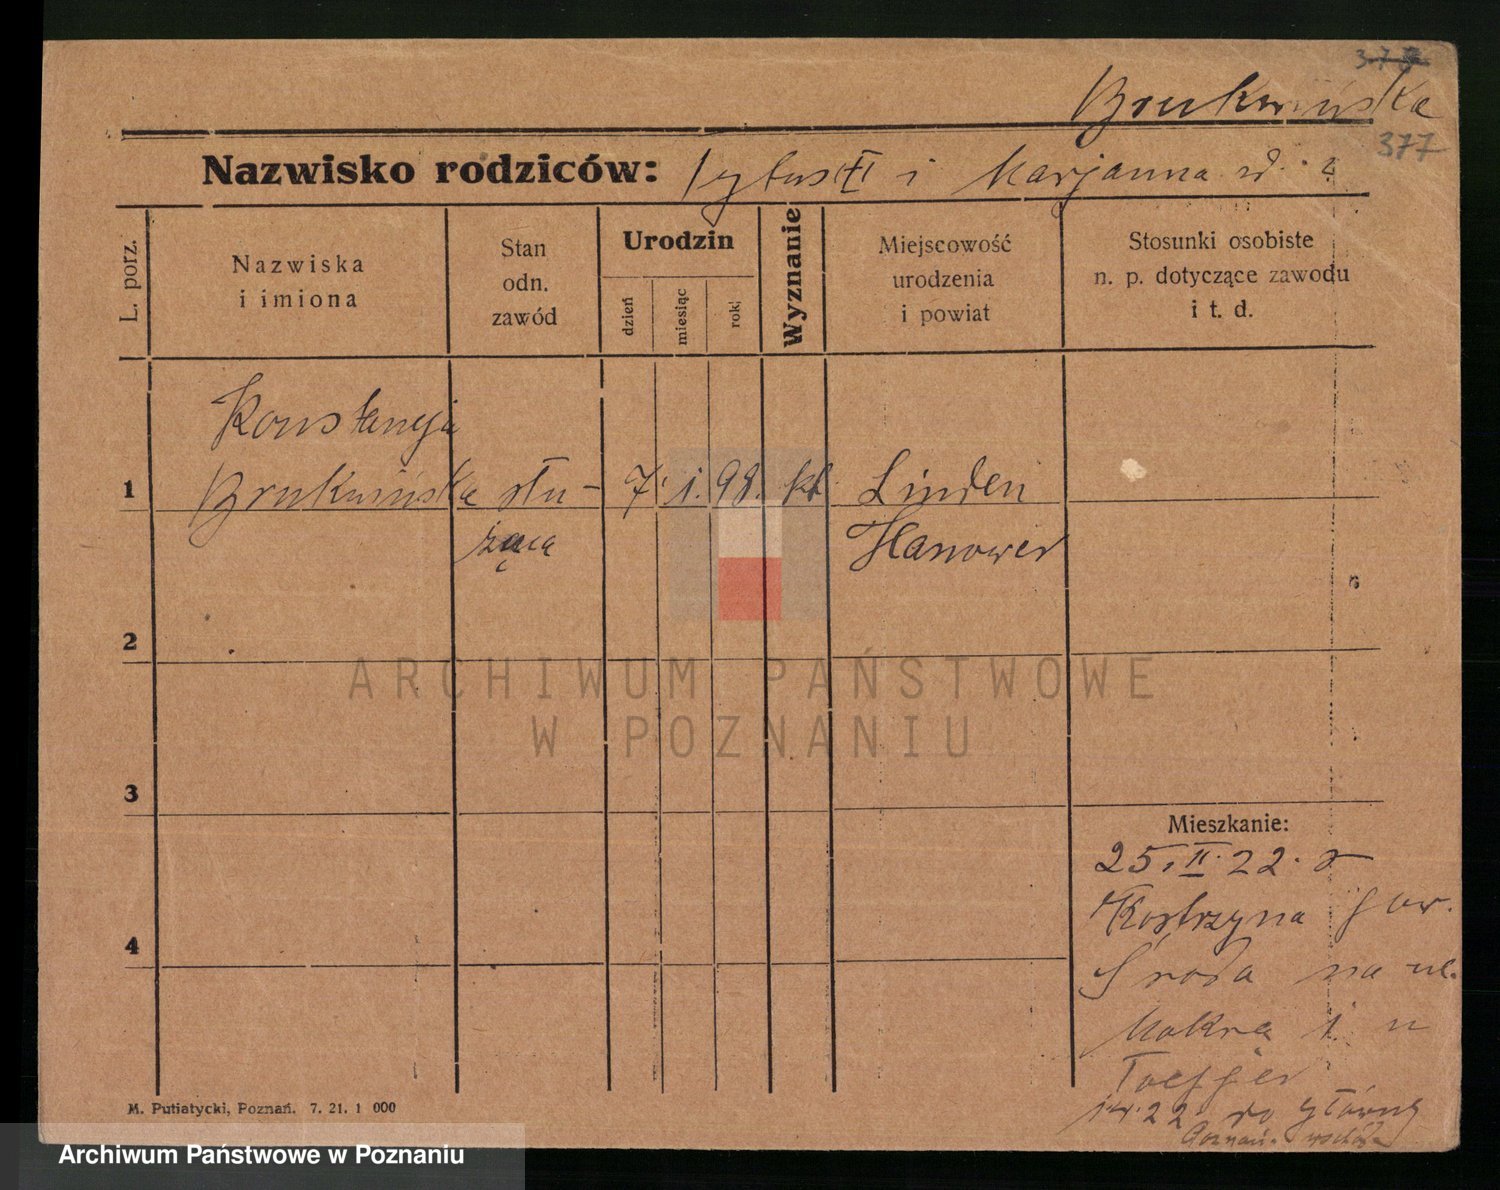 Brukwińska
377
Nazwisko rodziców: i Marjanna
L. porz.
Nazwiska
i imiona
Stan
odn.
zawód
Urodzin
dzień
miesiąc
rok
Wyznanie
Miejscowość
urodzenia
i powiat
Stosunki osobiste
n. p. dotyczące zawodu
i t. d.
Konstancja
1 Brukwińska słu- 7. 1. 98. kt. Linden
żąca Hanower
2
3
Mieszkanie:
25. II. 22. z
Kostrzyna pow.
4
Środa na ul.
Mokrą 1. u
22 do
Poznań-
M. Putiatycki, Poznań. 7. 21. 1 000
ARCHIWUM PAŃSTWOWE
W POZNANIU
Archiwum Państwowe w Poznaniu